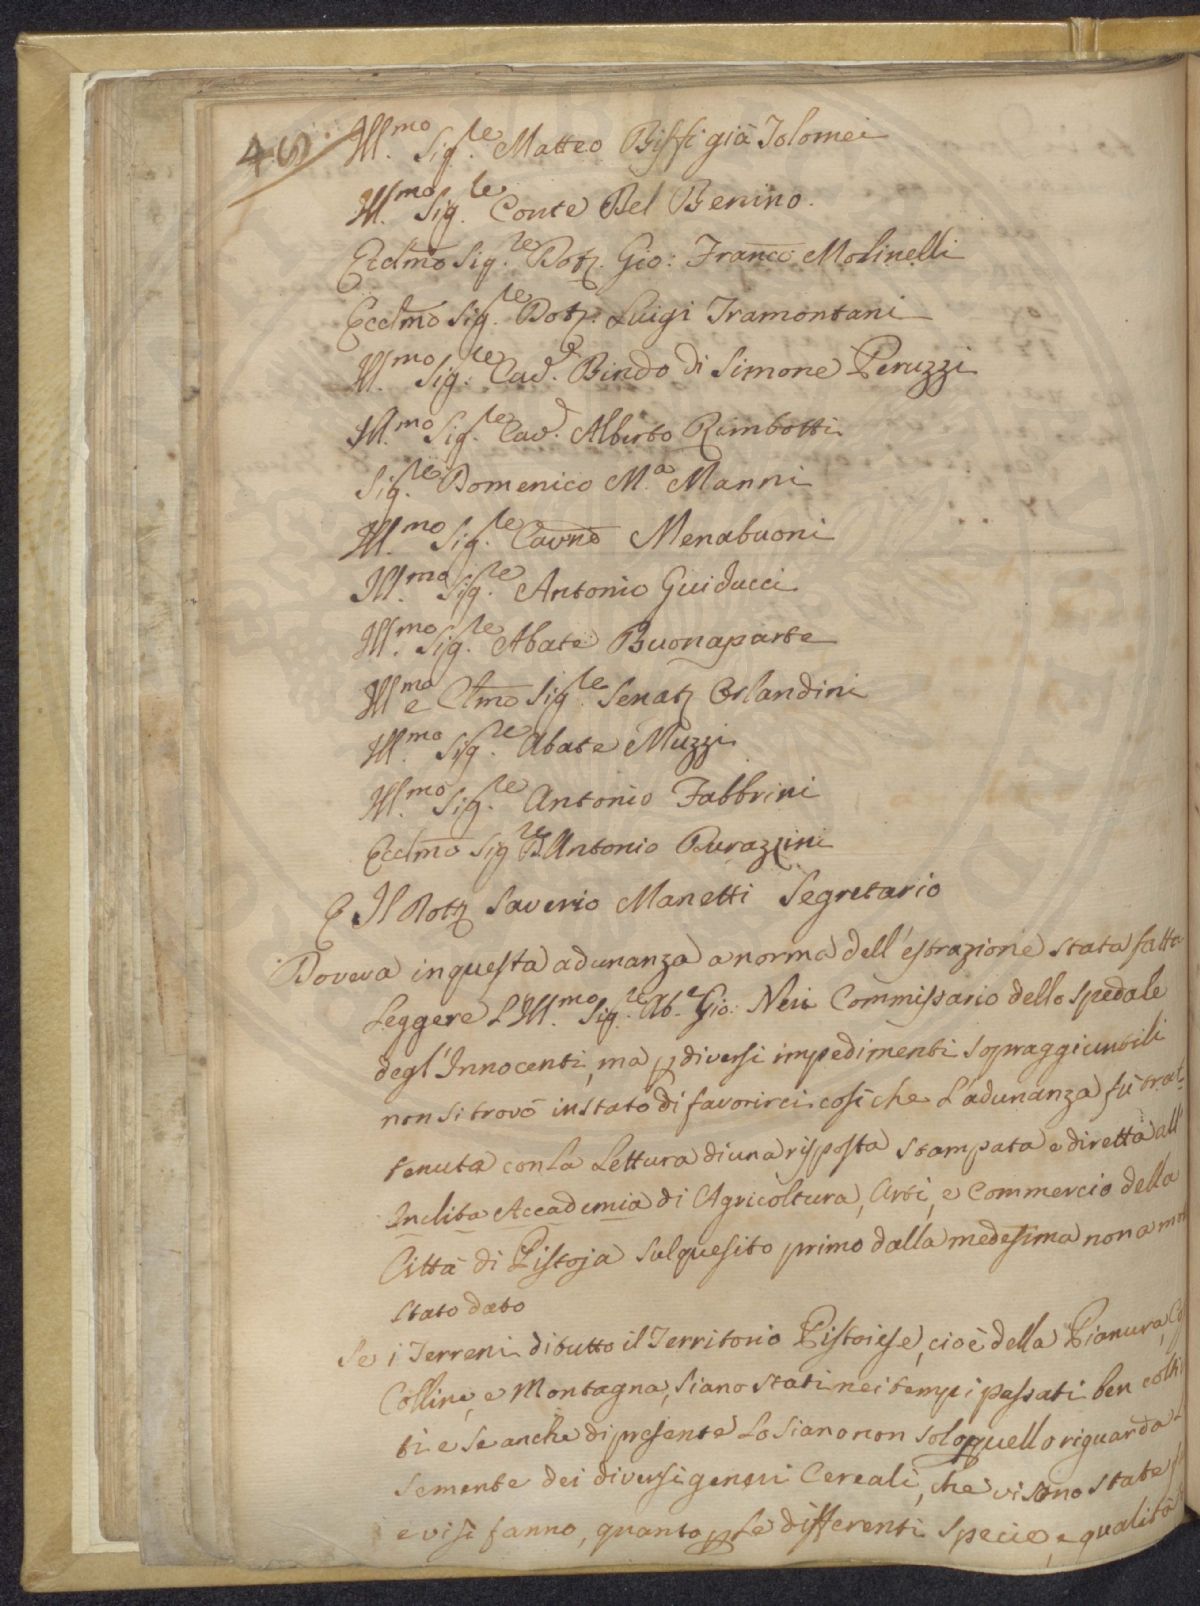 46
Ill.mo Sig.re Matteo Biffi già Tolomei
Ill.mo Sig.re Conte Del Benino.
Eccl̄mo Sig.re Dott. Gio: Franc̄o Molinelli
Eccl̄mo Sig.re Dott. Luigi Tramontani
Ill.mo Sig.re Cav.e Bindo di Simone Peruzzi
Ill.mo Sig.re Cav.e Alberto Rimbotti
Sig.re Domenico M.a Manni
Ill.mo Sig.re Menabuoni
Ill.mo Sig.re Antonio Guiducci
Ill.mo Sig.re Abate Buonaparte
Ill.mo e Cl̄mo Sig.re Senat. Orlandini
Ill.mo Sig.re Abate Muzzi
Ill.mo Sig.re Antonio Fabbrini
Eccl̄mo Sig.re D. Antonio Durazzini
E Il Dott. Saverio Manetti Segretario
Doveva in questa adunanza a norma dell'estrazione stata fatta
Leggere L'Ill.mo Sig.re Ab.e Gio: Neri Commissario dello Spedale
degl'Innocenti, ma p diversi impedimenti sopraggiuntili
non si trovò in stato di favorirci cosìche L'adunanza fù trat-
tenuta con La Lettura di una risposta stampata e diretta all'
Inclita Accademia di Agricoltura, Arti, e Commercio della
Città di Pistoja sul quesito primo dalla medesima non a mol
stato dato
Se i Terreni di tutto il Territorio Pistoiese, cioè della Pianura,
Colline, e Montagna, siano stati nei tempi passati ben colti
ti e se anche di presente Lo siano non solo p quello riguarda
semente dei diversi generi Cereali, che vi sono state
e vi si fanno, quanto p Le differenti specie, e qualità